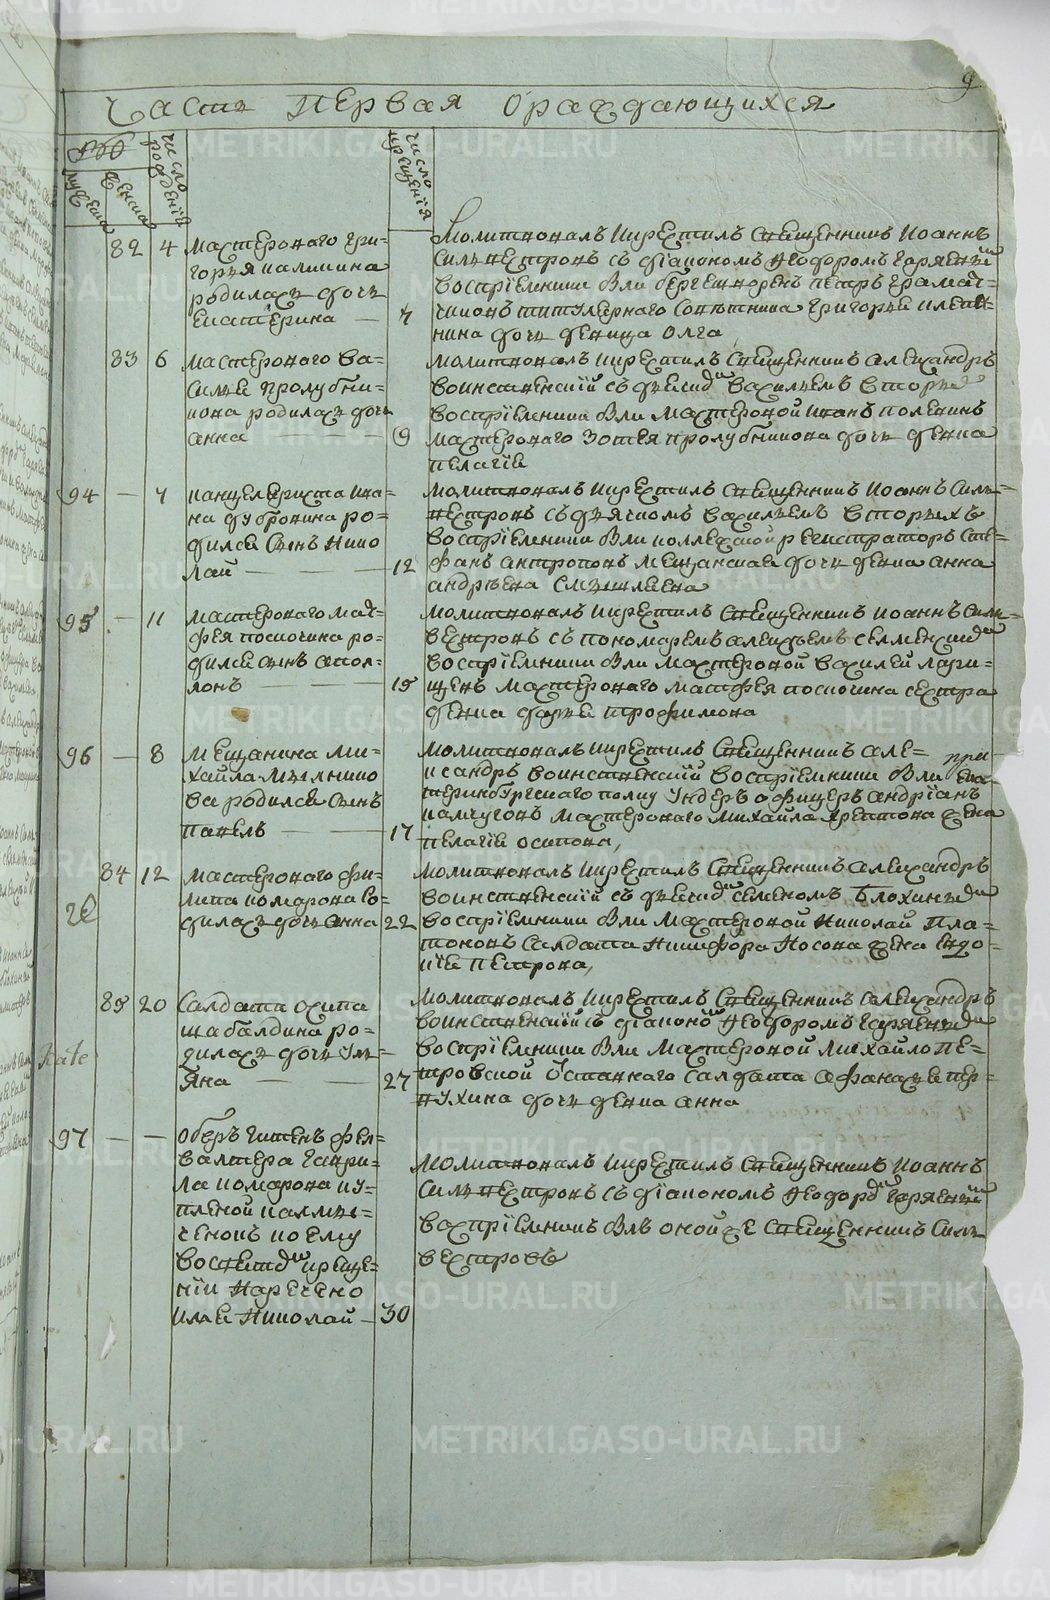 9
Часть первая ораждающихся
мужеска
женска
число рождения
число крещения
82 4 мастероваго Гри-
горья калинина
родилась дочь
Екатерина — 7
Молитвовалъ и крестилъ священникъ Иоаннъ
Сильвестровъ съ диакономъ Феодоромъ
восприемники были петръ
титулярнаго советника Григорья
нина дочь девица Олга
83 6 мастероваго ва-
силья пролубни-
кова родилась дочь
анна — 9
молитвовалъ и крестилъ священникъ александръ
воинственский съ дьячкомъ василъемъ вторыхъ
восприемники были мастеровой иванъ поленинъ
мастероваго Зотея пролубникова дочь девка
пелагия
94 — 7 канцеляриста ива-
на дубровина ро-
дился сынъ нико
лай — 12
молитвовалъ и крестилъ священникъ Иоаннъ Силь-
вестровъ съ дьячкомъ василъемъ вторыхъ
восприемники были коллежской регистраторъ сте-
фанъ антроповъ мещанская дочь девка анна
андреева
95 — 11 мастероваго мат-
фея посночина ро-
дился сынъ апол-
лонъ — 15
молитвовалъ и крестилъ священникъ иоаннъ силь-
вестровъ съ пономаремъ алексеемъ
восприемники были мастеровой василей лари-
мастероваго матфея посночина сестра
девка дарья трофимова
96 — 8 мещанина ми-
хайла мыльнико
ва родился сынъ
павелъ — 17
молитвовалъ и крестилъ священникъ але- при
ксандръ воинственский восприемники были ека-
теринбургскаго полку ундеръ офицеръ андрианъ
камчуговъ мастероваго михайла хрептова жена
пелагия осипова,
84 12 мастероваго фи-
липа комарова ро-
дилась дочь анна 22
молитвовалъ и крестилъ священникъ александръ
воинственский съ дьячкомъ семеномъ блохинымъ
восприемники были мастеровой николай пла-
тоновъ салдата никифора носова жена евдо-
кия петрова,
85 20 Салдата осипа
шабалдина ро-
дилась дочь уль-
яна — 27
молитвовалъ и крестилъ священникъ александръ
воинственский съ диакономъ феодоромъ
восприемники были мастеровой михайло пе-
тровской отставнаго салдата афанасья пер-
вухина дочь девка анна
97 — — оберъ гитенъ фер-
валтера гаври-
ла комарова ку-
пленой калмы-
ченокъ коему
во святомъ креще-
нии наречено
имя николай — 30
Молитвовалъ и крестилъ священникъ Иоаннъ
Сильвестровъ съ диакономъ феодоромъ
восприемникъ былъ оной же священникъ Силь
вестровъ